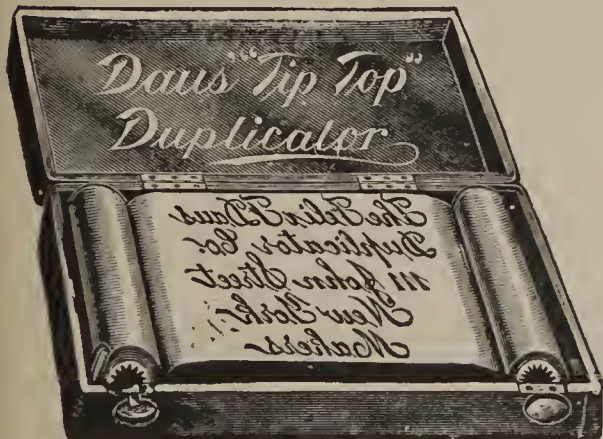 Daus' "Tip Top"
Duplicator
The Felix F. Daus
Duplicator Co.
111 John Street
New York
Makers